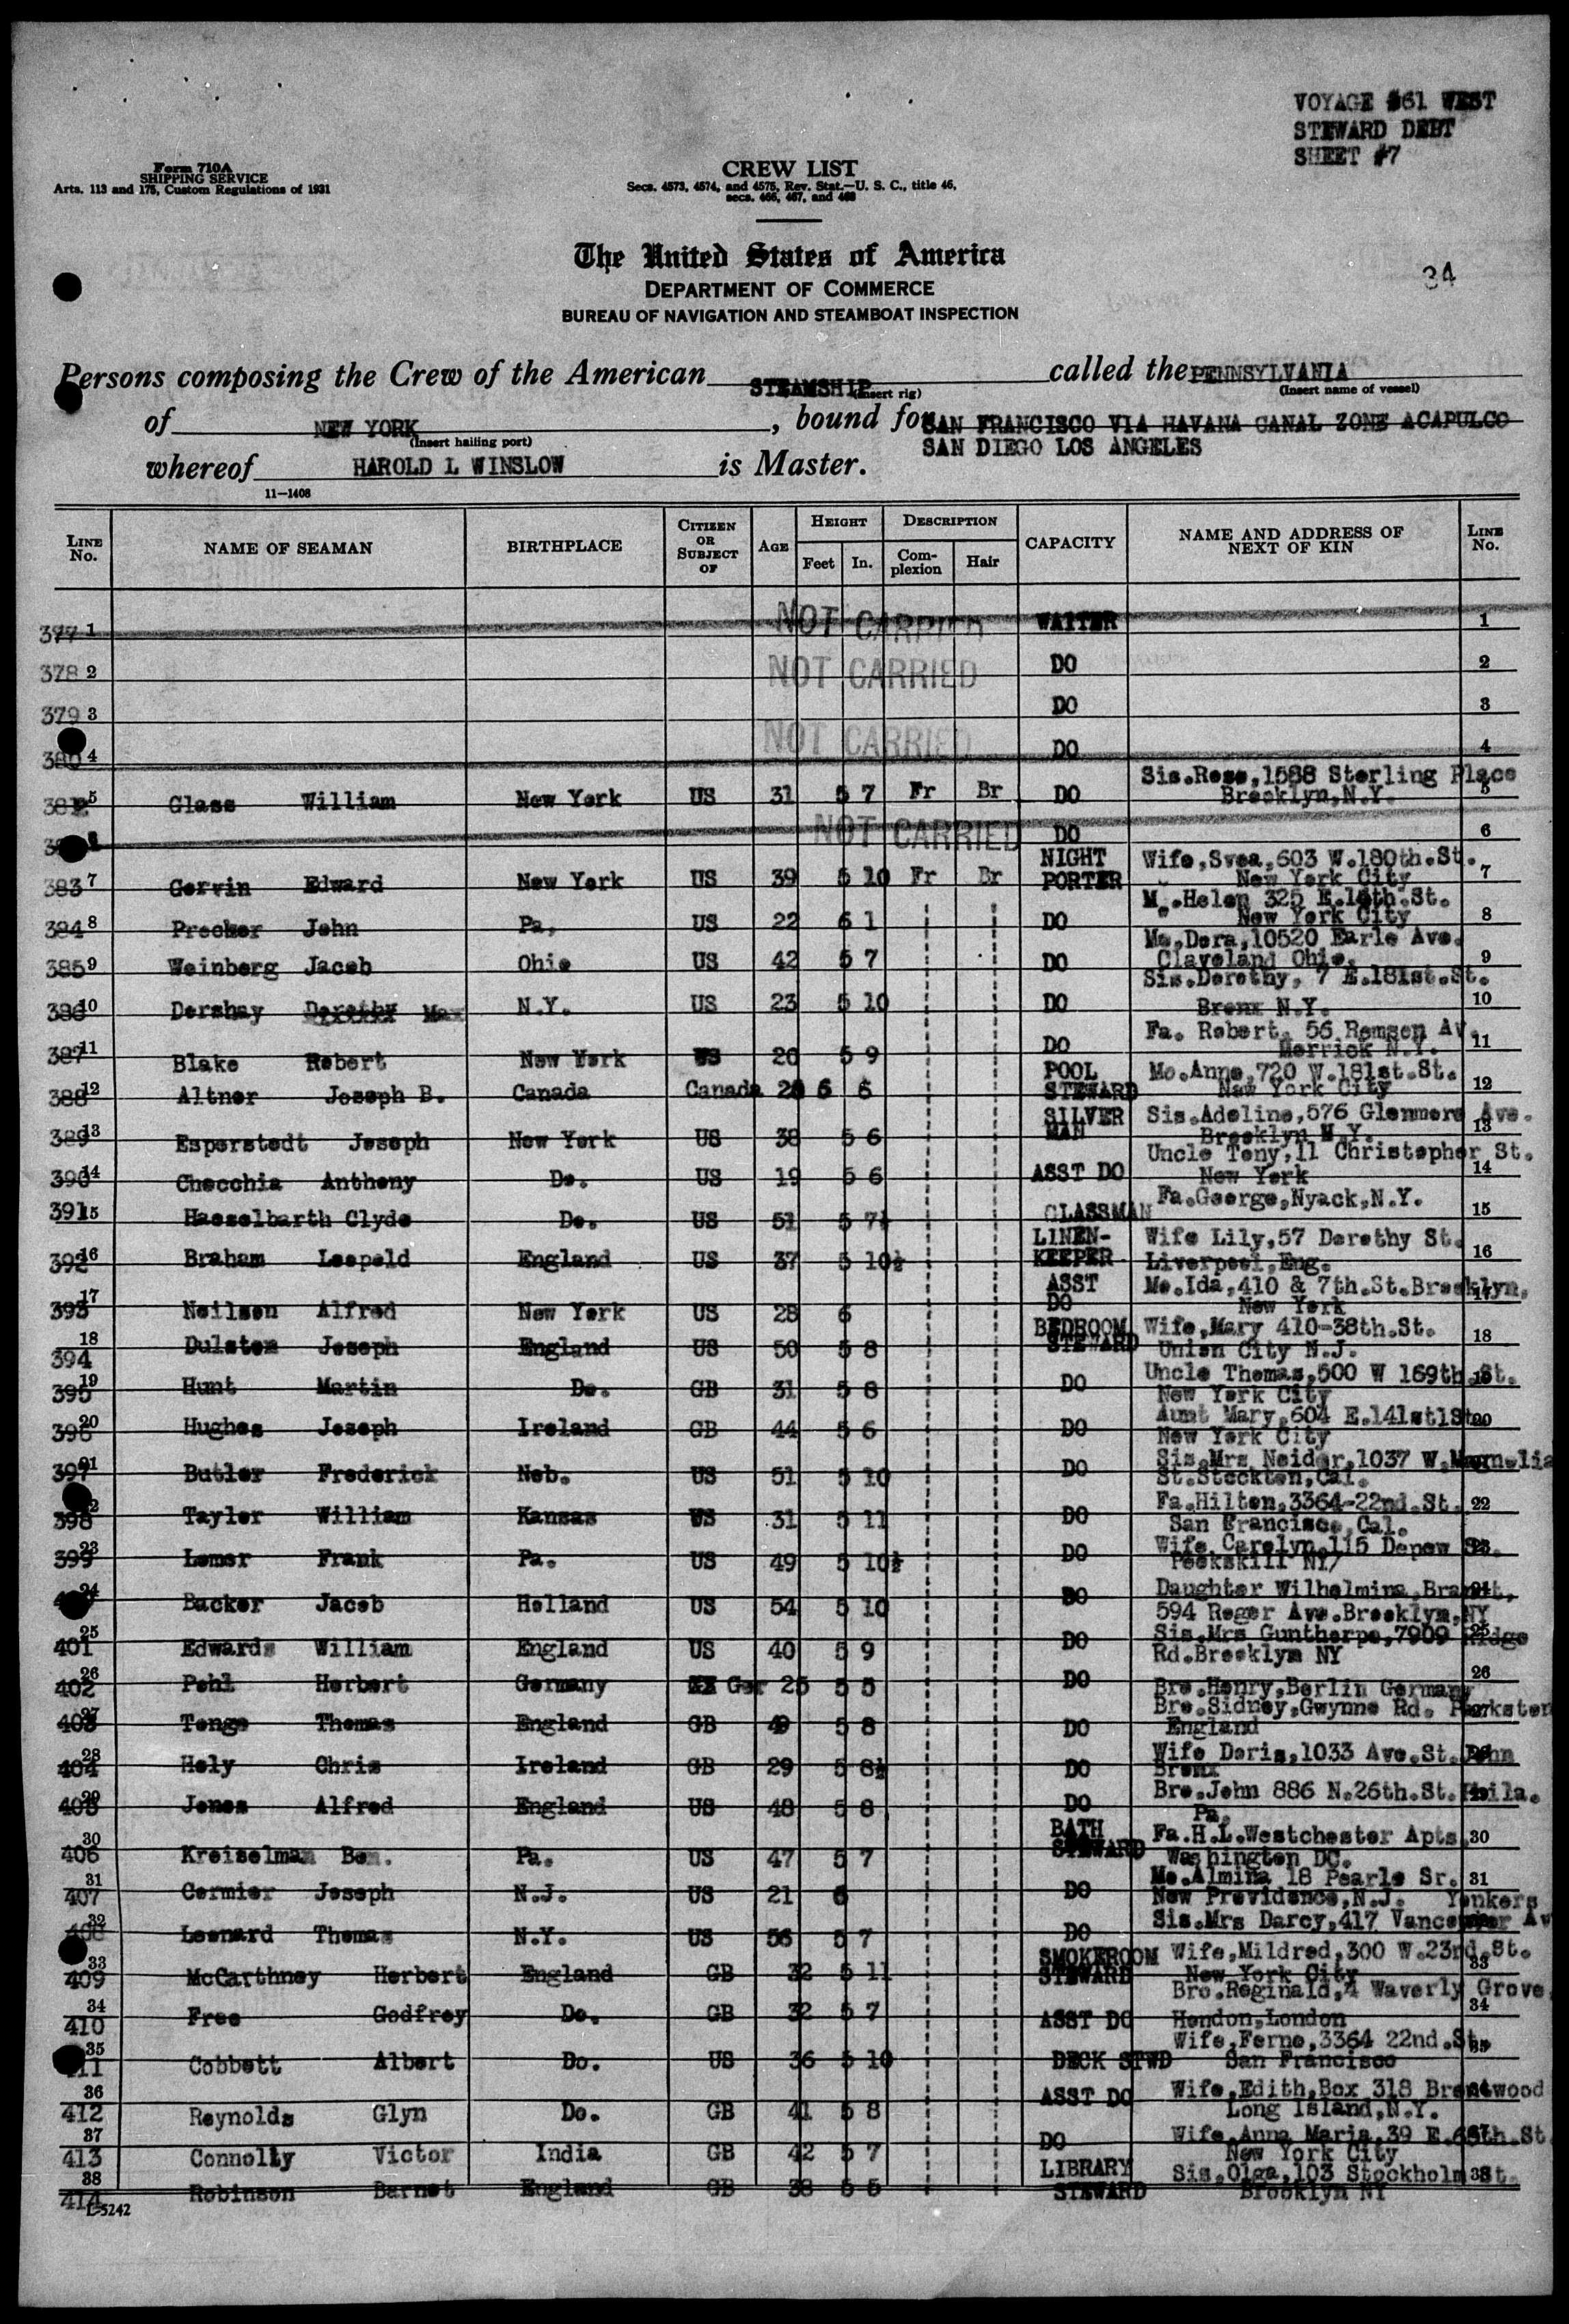 VOYAGE #61 WEST
STEWARD DEPT
SHEET #7
Form 710A
SHIPPING SERVICE
Arts. 113 and 175, Custom Regulations of 1931
CREW LIST
Secs. 4573, 4574, and 4575, Rev. Stat.—U. S. C., title 46,
secs. 466, 467, and 468
The United States of America
DEPARTMENT OF COMMERCE
BUREAU OF NAVIGATION AND STEAMBOAT INSPECTION
34
Persons composing the Crew of the American STEAMSHIP (Insert rig) called the PENNSYLVANIA (Insert name of vessel)
of NEW YORK (Insert hailing port), bound for SAN FRANCISCO VIA HAVANA CANAL ZONE ACAPULCO
SAN DIEGO LOS ANGELES
whereof HAROLD L WINSLOW is Master.
11—1408
LINE No. NAME OF SEAMAN BIRTHPLACE CITIZEN OR SUBJECT OF AGE HEIGHT Feet In. DESCRIPTION Complexion Hair CAPACITY NAME AND ADDRESS OF NEXT OF KIN LINE No.
377 1 NOT CARRIED WAITER 1
378 2 NOT CARRIED DO 2
379 3 DO 3
380 4 NOT CARRIED DO 4
381 5 Glass William New York US 31 5 7 Fr Br DO Sis.Rose,1588 Sterling Place Brooklyn,N.Y. 5
NOT CARRIED DO 6
383 7 Gervin Edward New York US 39 5 10 Fr Br NIGHT PORTER Wife,Svea,603 W.180th.St. New York City 7
384 8 Procker John Pa, US 22 6 1 DO M..Helen 325 E. St. New York City 8
385 9 Weinberg Jacob Ohio US 42 5 7 DO Mo,Dora,10520 Earle Ave. Claveland Ohio, 9
386 10 Dershay Dorothy Max N.Y. US 23 5 10 DO Sis.Dorothy, 7 E.181st.St. Bronx N.Y. 10
387 11 Blake Robert New York US 20 5 9 DO Fa. Robert, 56 Remsen Av. Merrick N.Y. 11
388 12 Altner Joseph B. Canada Canada 6 6 POOL STEWARD Mo.Anne,720 W.181st.St. New York City 12
389 13 Esperstedt Joseph New York US 38 5 6 SILVER MAN Sis.Adeline,576 Glenmore Ave. Brooklyn N.Y. 13
390 14 Checchia Anthony Do. US 19 5 6 ASST DO Uncle Tony,11 Christopher St. New York 14
391 15 Haeselbarth Clyde Do. US 51 5 7½ GLASSMAN Fa.George,Nyack,N.Y. 15
392 16 Braham Leopold England US 37 5 10½ LINEN-KEEPER Wife Lily,57 Dorothy St. Liverpool,Eng. 16
393 17 Neilson Alfred New York US 28 6 ASST DO Mo.Ida,410 & 7th.St.Brooklyn, New York 17
394 18 Dulston Joseph England US 50 5 8 BEDROOM STEWARD Wife,Mary 410-38th.St. Union City N.J. 18
395 19 Hunt Martin Do. GB 31 5 8 DO Uncle Thomas,500 W 169th.St. New York City 19
396 20 Hughes Joseph Ireland GB 44 5 6 DO Aunt Mary,604 E.141st St. New York City 20
397 21 Butler Frederick Neb. US 51 5 10 DO Sis.Mrs Neider,1037 W.Magnolia St.Stockton,Cal.
398 22 Tayler William Kansas US 31 5 11 DO Fa.Hilton,3364-22nd.St. San Francisco,Cal. 22
399 23 Lemer Frank Pa. US 49 5 10½ DO Wife Carolyn,115 Depew St. Peekskill NY/ 23
24 Backer Jacob Holland US 54 5 10 DO Daughter Wilhelmina,Brandt, 594 Roger Ave.Brooklyn,NY
401 25 Edwards William England US 40 5 9 DO Sis.Mrs Guntherpe,7909 Ridge Rd.Brooklyn NY 25
402 26 Pohl Herbert Germany Ger 25 5 5 DO Bro.Henry,Berlin Germany 26
403 27 Tonge Thomas England GB 49 5 8 DO Bro.Sidney,Gwynne Rd. Parkston England
404 28 Hely Chris Ireland GB 29 5 8½ DO Wife Doris,1033 Ave.St.John Bronx
405 29 Jones Alfred England US 48 5 8 DO Bro.John 886 N.26th.St.Phila. Pa.
406 30 Kreiselman Ben. Pa. US 47 5 7 BATH STEWARD Fa.H.L.Westchester Apts Washington DC. 30
407 31 Cormier Joseph N.J. US 21 6 DO Mo.Almina 18 Pearle Sr. New Providence,N.J. 31
408 32 Leonard Thomas N.Y. US 56 5 7 DO Sis.Mrs Darcy,417 Vancouver Av Yonkers
409 33 McCarthney Herbert England GB 32 5 11 SMOKEROOM STEWARD Wife,Mildred,300 W.23rd.St. New York City 33
410 34 Free Godfrey Do. GB 32 5 7 ASST DO Bro.Reginald,4 Waverly Grove Hendon,London 34
35 Cobbett Albert Do. US 36 5 10 DECK STWD Wife,Ferne,3364 22nd.St. San Francisco 35
412 36 Reynolds Glyn Do. GB 41 5 8 ASST DO Wife,Edith,Box 318 Brentwood Long Island,N.Y.
413 37 Connolly Victor India GB 42 5 7 DO Wife,Anna Maria,39 E. St New York City
414 38 Robinson Barnet England GB 38 5 5 LIBRARY STEWARD Sis,Olga,103 Stockholm St. Brooklyn NY 38
L-5242